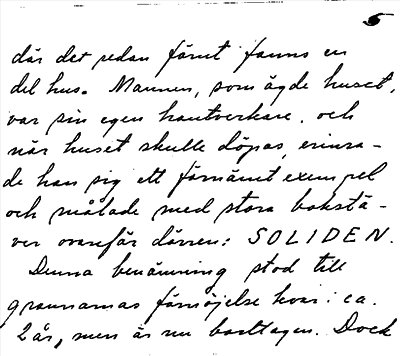 5
där det redan förut fanns en
del hus. Mannen, som ägde huset,
var sin egen hantverkare, och
när huset skulle döpas, erinra-
de han sig ett förnämt exempel
och målade med stora bokstä-
ver ovanför dörren: SOLIDEN.
Denna benämning stod till
grannarnas förnöjelse kvar i ca.
2 år, men är nu borttagen. Dock